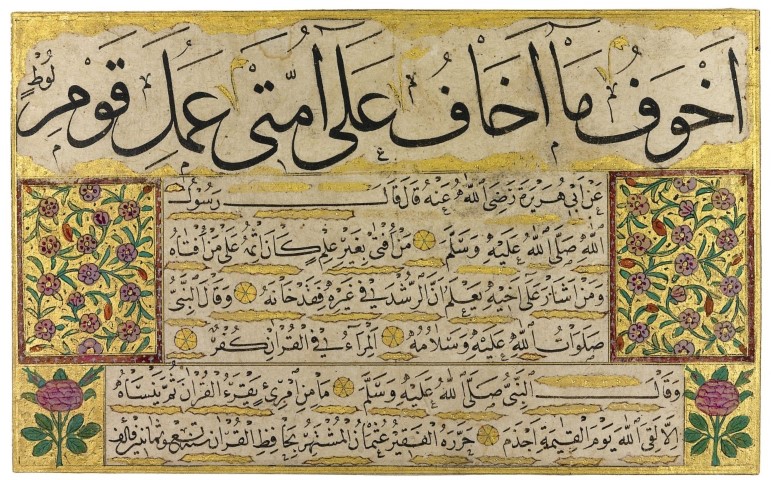 اَخْوَفُ مَا اَخَافُ عَلَى اُمَّتِى عَمَلِ قَوْمِ لُوطٍ
عَنْ اَبِى هُرَيْرَةَ رَضِىَ اللّٰهُ عَنْهُ قَالَ قَالَ رَسُولُ
اللّٰهِ صَلَّى اللّٰهُ عَلَيْهِ وَسَلَّمَ مَنْ اَفْتَى بِغَيْرِ عِلْمٍ كَانَ اِثْمُهُ عَلَى مَنْ اَفْتَاهُ
وَمَنْ اَشَارَ عَلَى اَخِيهِ يَعْلَمُ اَنَّ الرُّشْدَ فِى غَيْرِهِ فَقَدْ خَانَهُ وَقَالَ النَّبِىُّ
صَلَوَاتُ اللّٰهِ عَلَيْهِ وَسَلَامُهُ اَلْمِرَاءُ فِى الْقُرْاٰنِ كُفْرٌ
وَقَالَ النَّبِىُّ صَلَّى اللّٰهُ عَلَيْهِ وَسَلَّمَ مَا مِنِ امْرِئٍ يَقْرَءُ الْقُرْاٰنَ ثُمَّ يَنْسَاهُ
اِلَّا لَقِىَ اللّٰهَ يَوْمَ الْقِيٰمَةِ اَجْذَمَ حَرَّرَهُ الْفَقِيرُ عُثْمَانُ الْمُشْتَهِرُ بِحَافِظِ الْقُرْاٰنِ